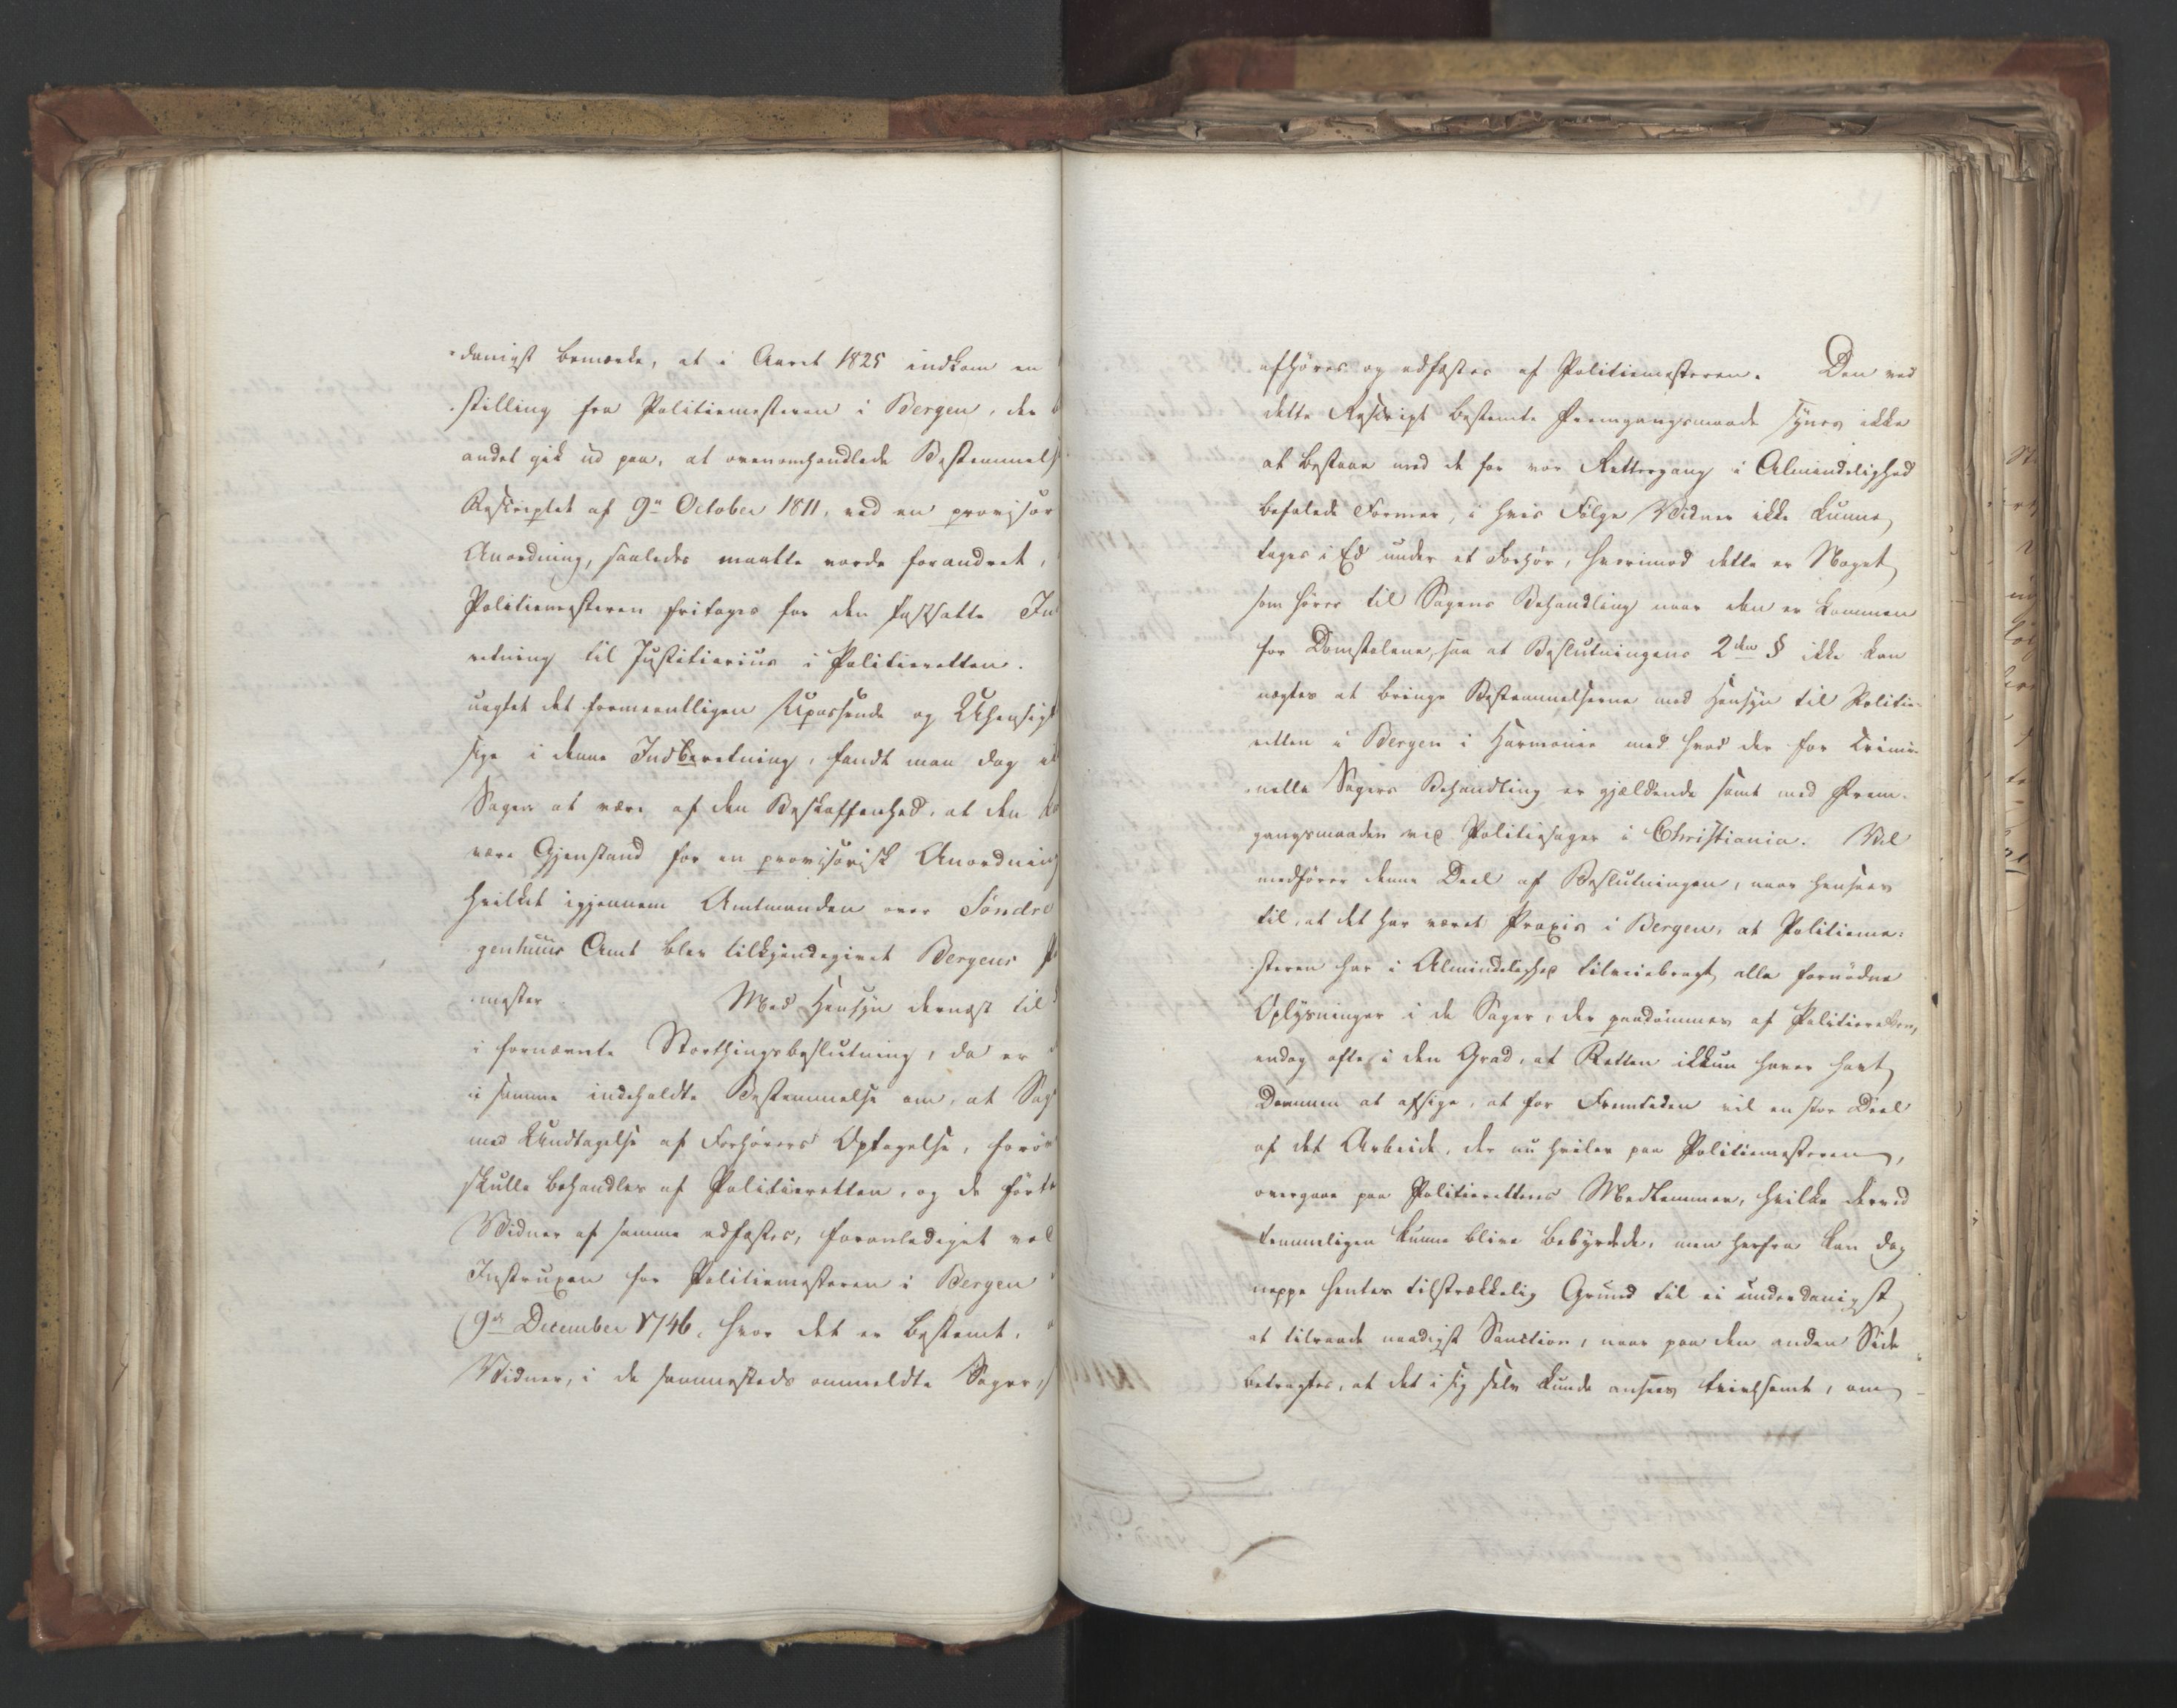 -danigst bemærke, at i Aaret 1825 indkom en
stilling fra Politiemesteren i Bergen, der
andet gik ud paa, at ovenomhandlede Bestemmels
Rescriptet af 9n October 1811, ved en provisor
Anordning, saaledes maatte vorde forandret,
Politiemesteren fritages for den fastsatte In
retning til Justitiarius i Politieretten.
uagtet det formeentligen Upassende og Uhensigt
sige i denne Indberetning, fandt man dog ei
Sagen at være af den Beskaffenhed, at den
være Gjenstand for en provisorisk Anordning
hvilket igjennem Amtmanden over Söndre
genhuus Amt blev tilkjendegivet Bergens P
mester. Med Hensyn dernæst til
i fornævnte Storthingsbeslutning, da er
i samme indeholdte Bestemmelse om, at Sag
med Undtagelse af Forhörers Optagelse, forös
skulle behandles af Politieretten, og de förte
Vidner af samme edfæstes, foranlediget ved
Instruxen for Politiemesteren i Bergen
9de December 1746, hvor det er bestemt,
Vidner, i de sammesteds ommeldte Sager,
afhöres og edfæstes af Politiemesteren. Den ved
dette Rescript bestemte Fremgangsmaade synes ikke
at bestaae med de for vor Rettergang i Almindelighed
befalede Former, i hvis Fölge Vidner ikke kunne
tages i Ed under et Forhör, hvorimod dette er Noget
som hörer til Sagens Behandling naar den er kommen
for Domstolene, saa at Beslutningens 2den § ikke kan
nægtes at bringe Bestemmelserne med Hensyn til Politie-
retten i Bergen i Harmonie med hvad der for Crimi-
nelle Sagers Behandling er gjældende samt med Frem-
gangsmaaden ved Politiesager i Christiania. Vel
medförer denne Deel af Beslutningen, naar hensees
til, at det har været Praxis i Bergen, at Politieme-
steren har i Almindelighed tilveiebragt alle fornödne
Oplysninger i de Sager, der paadömmes af Politieretten,
endog ofte i den Grad, at Retten ikkun haver havt
Dommen at afsige, at for Fremtiden vil en stor Deel
af det Arbeide, der nu hviler paa Politiemesteren,
overgaae paa Politierettens Medlemmer, hvilke derved
temmeligen kunne blive bebyrdede, men herfra kan dog
neppe hentes tilstrækkelig Grund til ei underdanigst
at tilraade naadigst Sanction, naar paa den anden Side
betragtes, at det i sig selv kunde ansees tvivlsomt, om